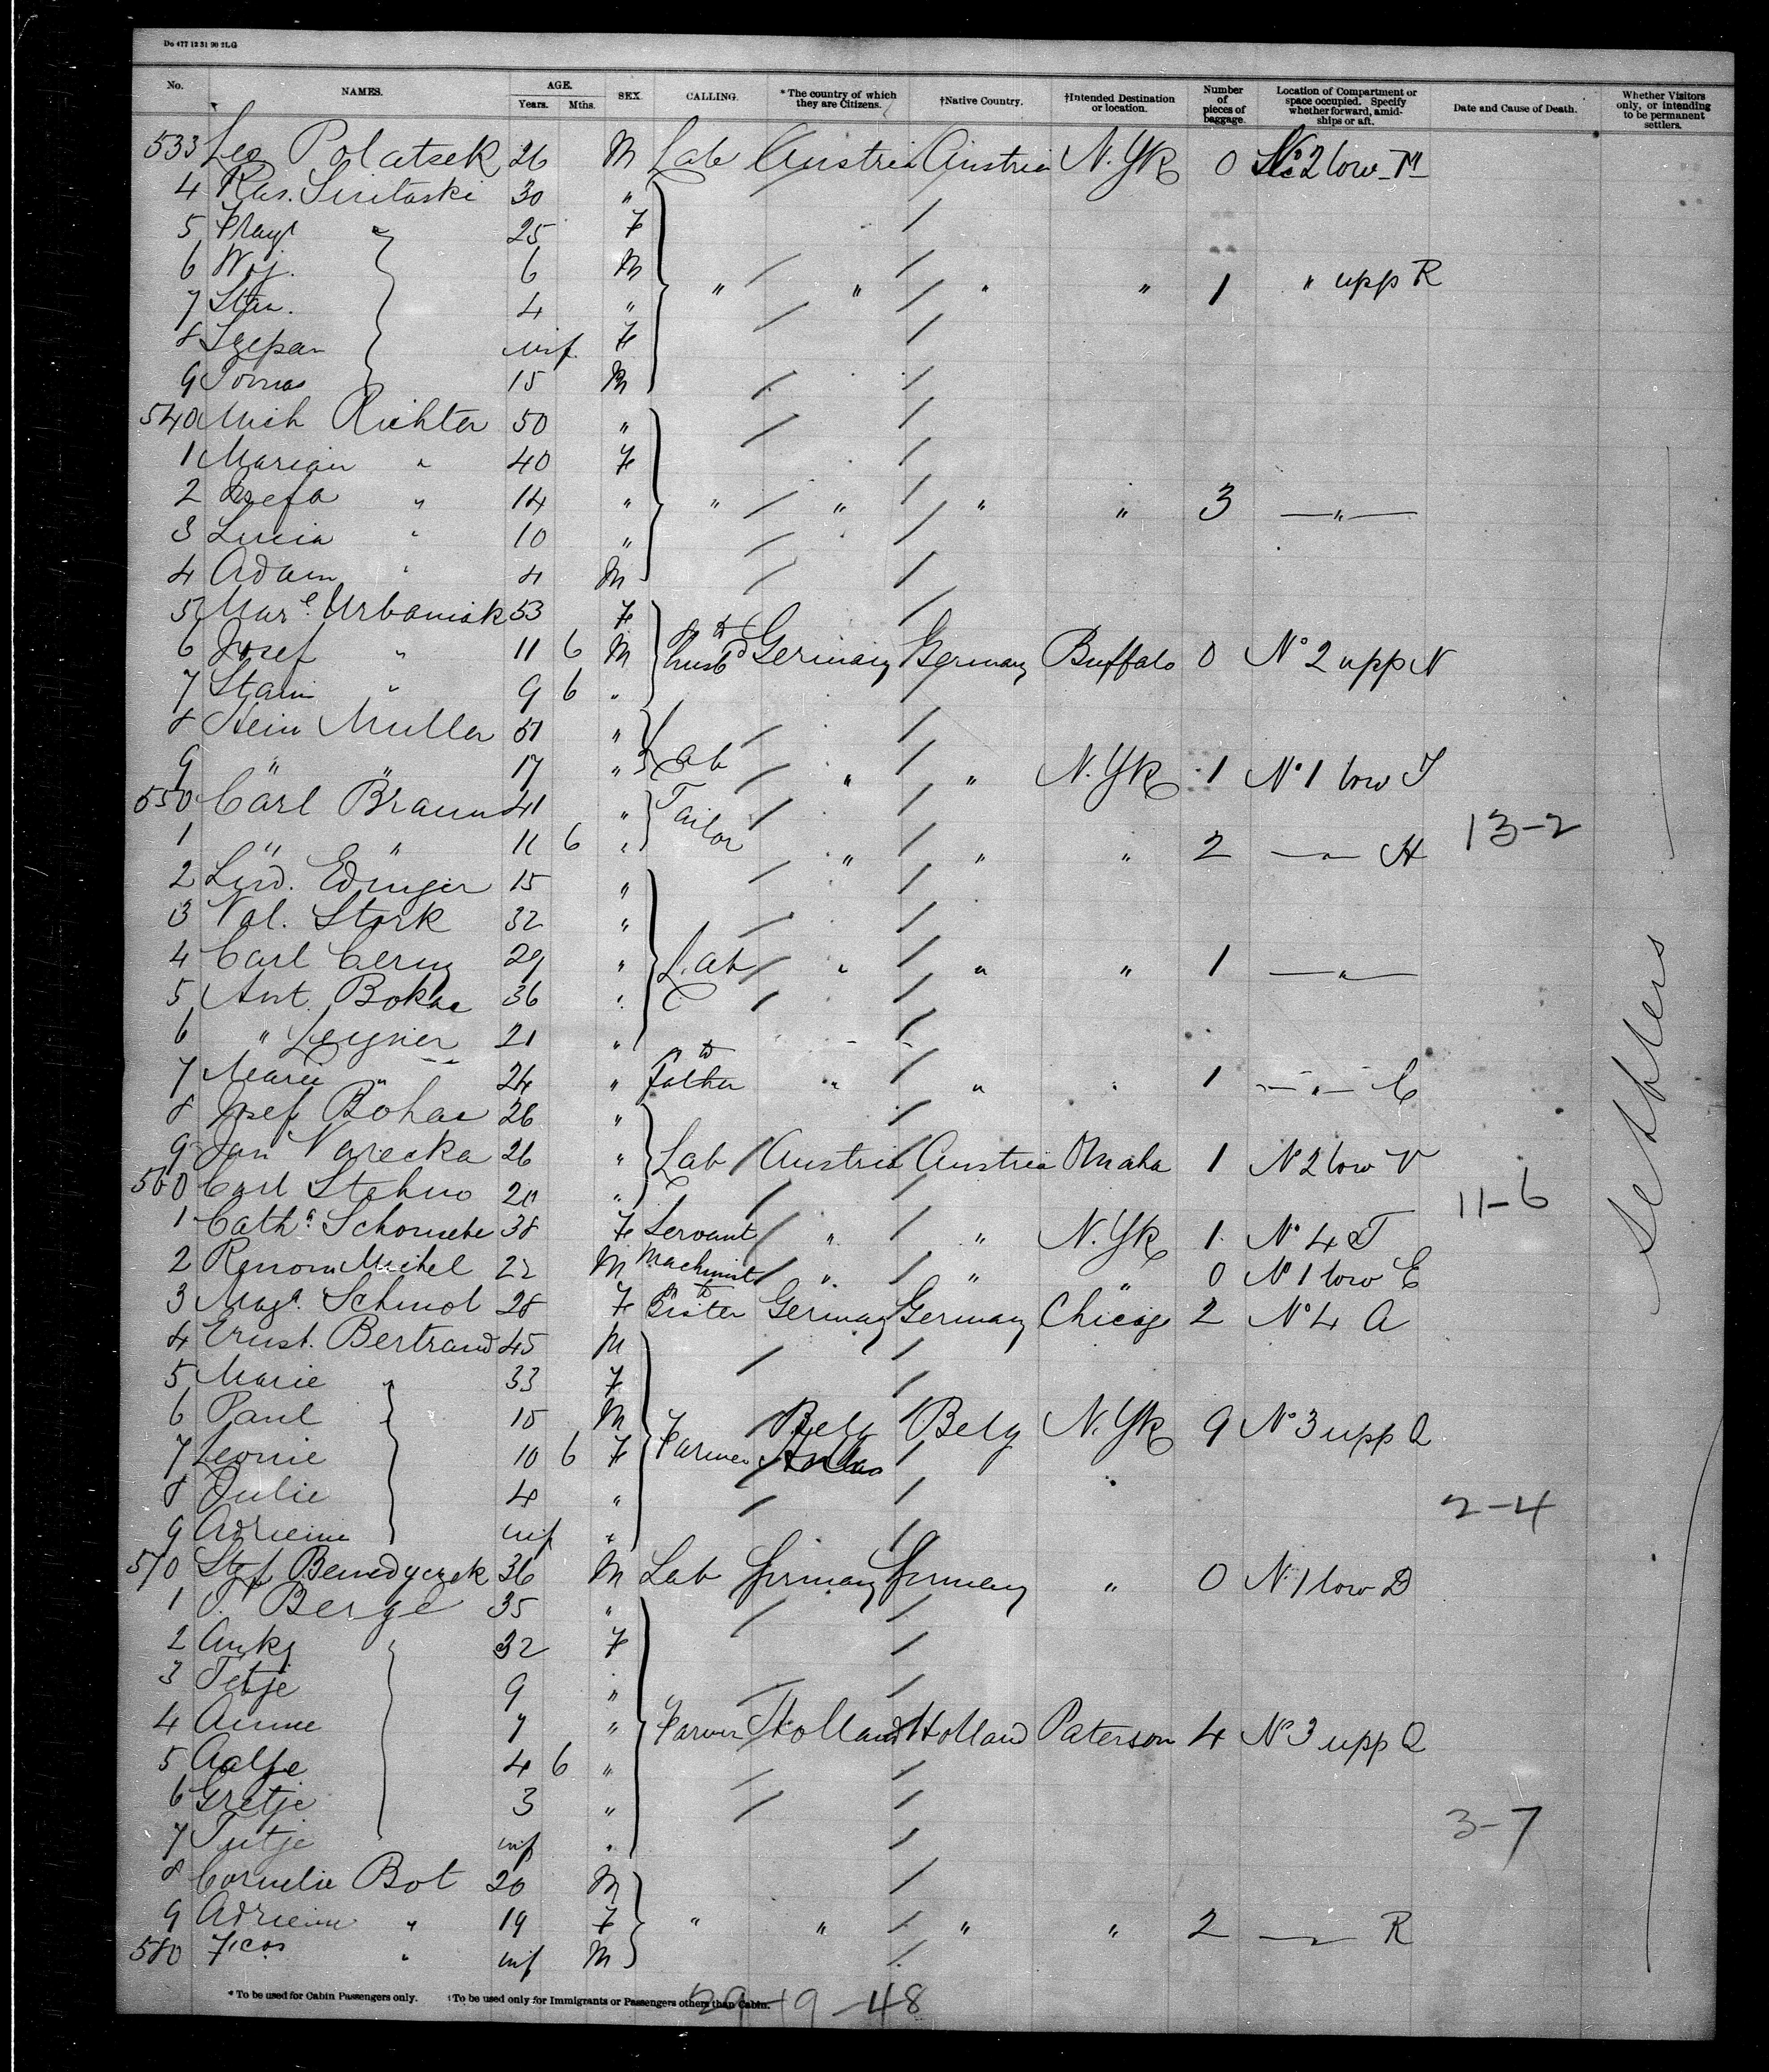 Do 477 12 31 90 2LG
No. NAMES. AGE. Years. Mths. SEX. CALLING. * The country of which they are Citizens. †Native Country. †Intended Destination or location. Number of pieces of baggage. Location of Compartment or space occupied. Specify whether forward, amid-ships or aft. Date and Cause of Death. Whether Visitors only, or intending to be permanent settlers.
533 Leo Polatsek 26 M Lab Austria Austria N. Yk 0 No 2 low M
4 Ras. 30 "
5 " 25 F
6 Woj. 6 M " " " " 1 " upp R
7 Stan. 4 "
8 Szepan inf. F
9 Tomas 15 M
540 Mich Richter 50 "
1 Marian " 40 F
2 Josefa " 14 " " " " " 3 — " —
3 Lucia " 10 "
4 Adam " 4 M
5 Mare Urbaniak 53 F
6 Josef " 11 6 M to husbd Germany Germany Buffalo 0 No 2 upp N
7 Stani " 9 6 "
8 Hein Muller 51 "
9 " " 17 " Lab " " N. Yk 1 No 1 low J
550 Carl Braun 41 " Tailor
1 " " 11 6 " " " " 2 — " — H 13-2
2 Lud. Edinger 15 "
3 Val. Stork 32 "
4 Carl Cerny 29 " Lab " " " 1 — " —
5 Ant. Bokac 36 "
6 " Leysner 21 "
7 Marie " 24 " to father " " " 1 — " — C
8 Josef Bohac 26 "
9 Jan Varecka 26 " Lab Austria Austria Omaha 1 No 2 low V
560 Carl Stehno 20 " 11-6
1 Catha 38 F Servant " " N. Yk 1 No 4 T
2 Michel 22 M Machinist " " " 0 No 1 low E
3 Maga. Schmol 28 F to Sister Germany Germany Chicago 2 No 4 A
4 Ernst. Bertrand 45 M
5 Marie " 33 F
6 Paul 15 M Belg Belg N. Yk 9 No 3 upp Q
7 Leonie 10 6 F Farmer
8 Julie 4 " 2-4
9 Adrienne inf "
570 Stef Benedyczek 36 M Lab Germany Germany " 0 No 1 low D
1 T. Berge 35 "
2 Ankj 32 F
3 Tetje 9 "
4 Annne 7 " Farmer Holland Holland Paterson 4 No 3 upp Q
5 Aalje 4 6 "
6 Gretje 3 " 3-7
7 Tutje inf "
8 Cornelie Bot 20 M
9 Adrienne " 19 F " " " " 2 — " — R
580 " inf M
Settlers
* To be used for Cabin Passengers only. †To be used only for Immigrants or Passengers others than Cabin.
29-19-48